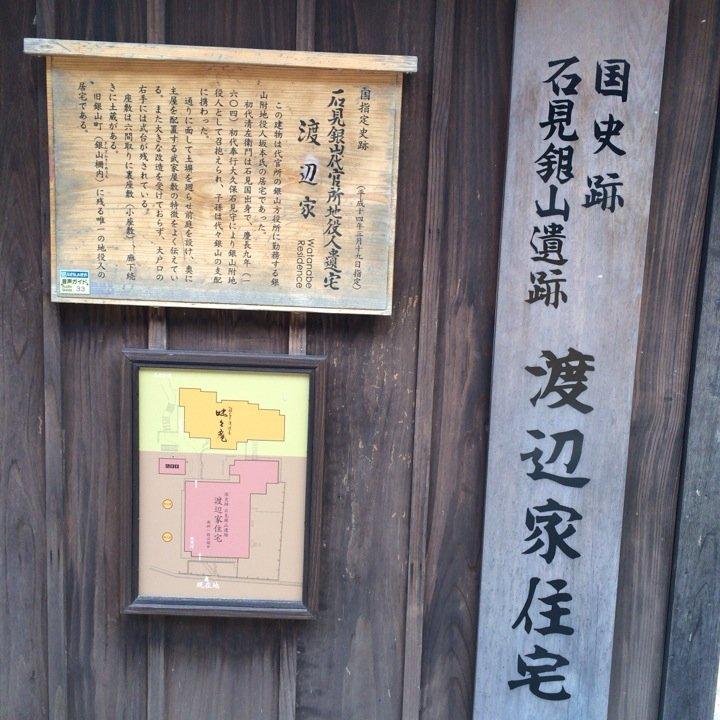 国史跡
石見銀山遺跡
渡辺家住宅
国指定史跡
(平成十四年三月十九日指定)
石見銀山代官所地役人遺宅
渡辺家
Watanabe
Residence
この建物は代官所の銀山方役所に勤務する銀
山附地役人坂本氏の居宅であった。
初代清左衛門は石見国出身で、慶長九年(一
六〇四)初代奉行大久保石見守により銀山附地
役人として召抱えられ、子孫は代々銀山の支配
に携わった。
通りに面して土塀を廻らせ前庭を設け、奥に
主屋を配置する武家屋敷の特徴をよく伝えてい
る。また大きな改造を受けておらず、大戸口の
右手には式台が残されている。
座敷は六間取りに裏座敷(小座敷)、廊下続
きに土蔵がある。
旧銀山町(銀山柵内)に残る唯一の地役人の
居宅である。
音声ガイド
33
国史跡 石見銀山遺跡
渡辺家住宅
現在地